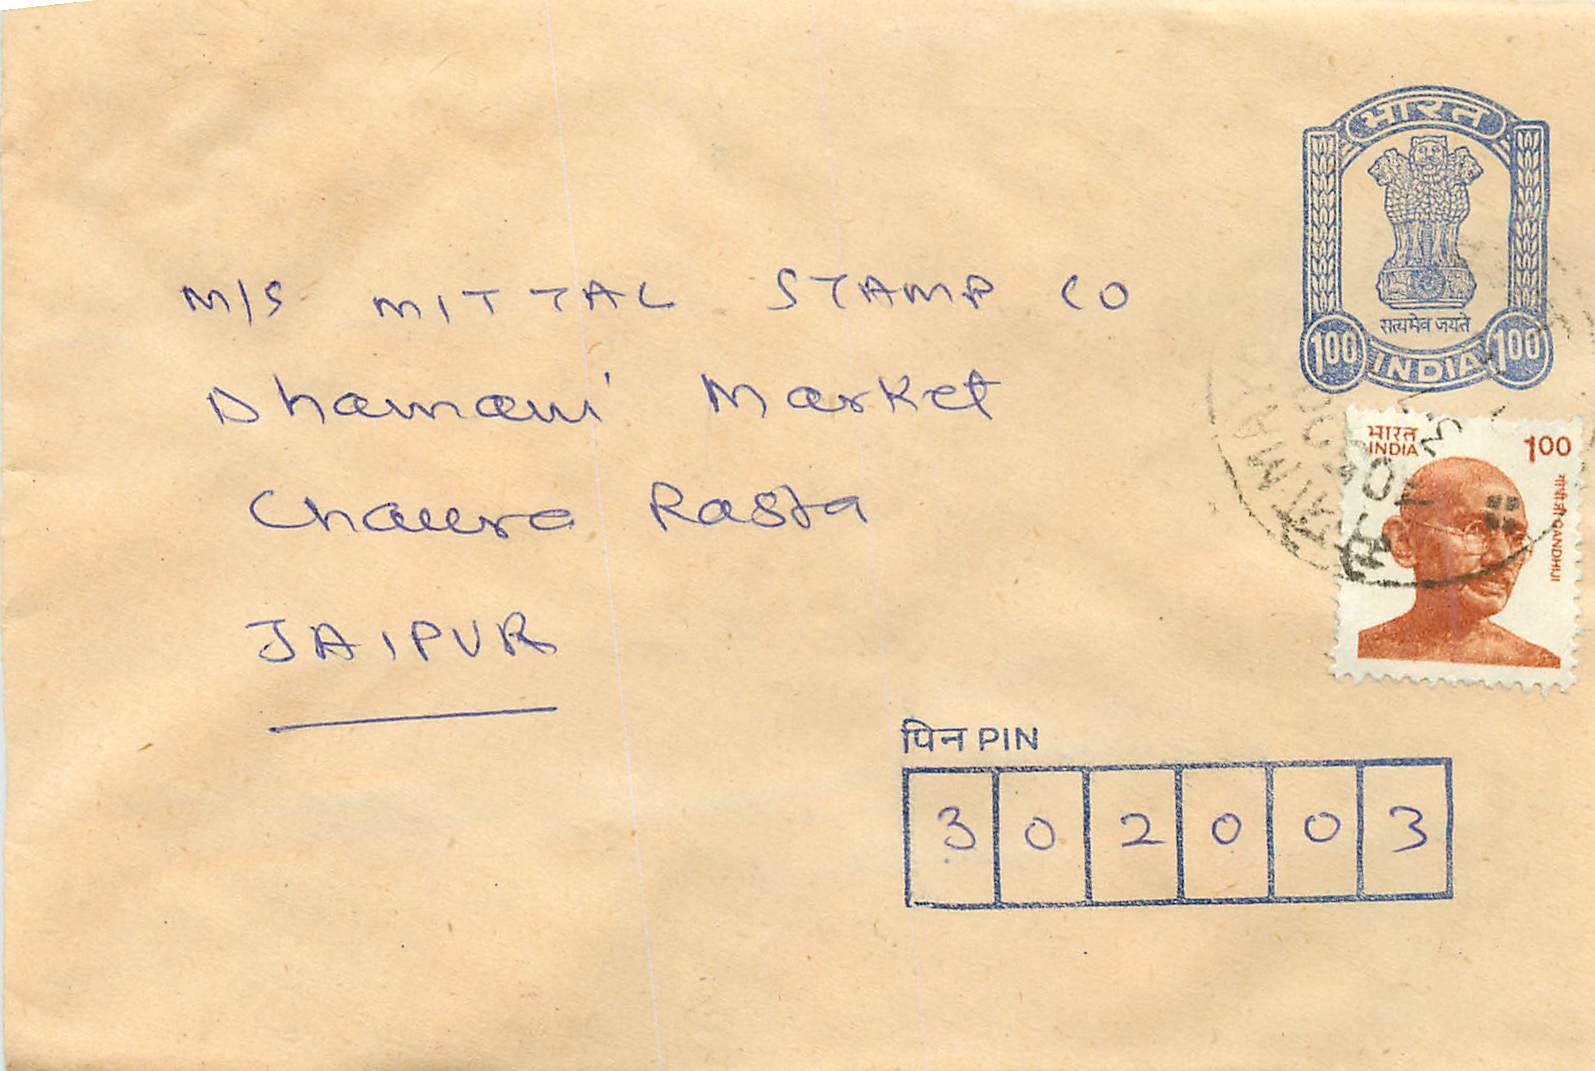 भारत
सत्यमेव जयते
100 INDIA 100
M/S MITTAL STAMP CO
Dhamani Market
Chaura Rasta
JAIPUR
भारत
INDIA
100
गांधीजी GANDHIJI
पिन PIN
3 0 2 0 0 3